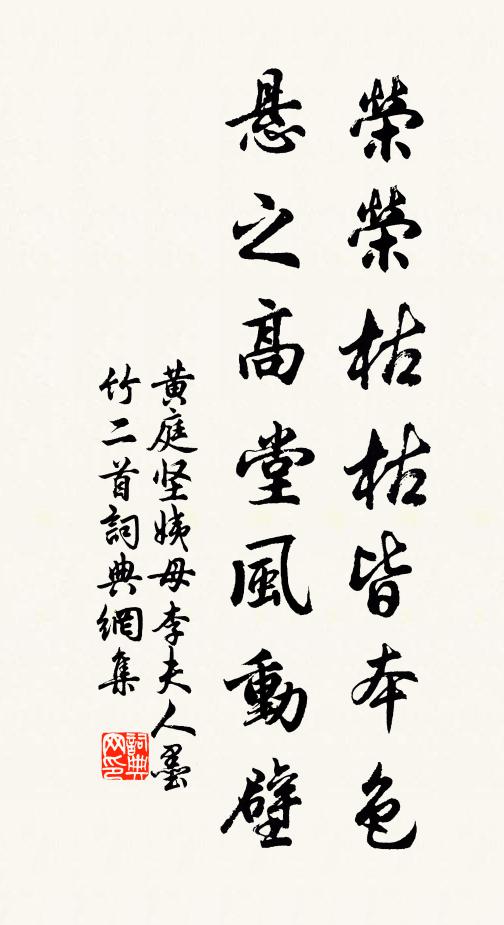 榮榮枯枯皆本色
懸之高堂風動壁
黄庭坚姨母李夫人墨
竹二首詞典網集
詞典
网印